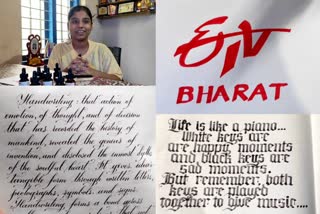 ETV
BHARAT
Handwriting that action of
emotion, of thought, and of decision
that has recorded the history of
mankind, revealed the genius of
invention, and disclosed the inmost depths
of the soulful heart. It gives ideas
tangible form through written letters,
pictographs, symbols, and signs.
Handwriting forms a bond across
Life is like a piano...
White keys are
are happy moments
and black keys are
sad moments.
But remember, both
keys are played
together to give music....